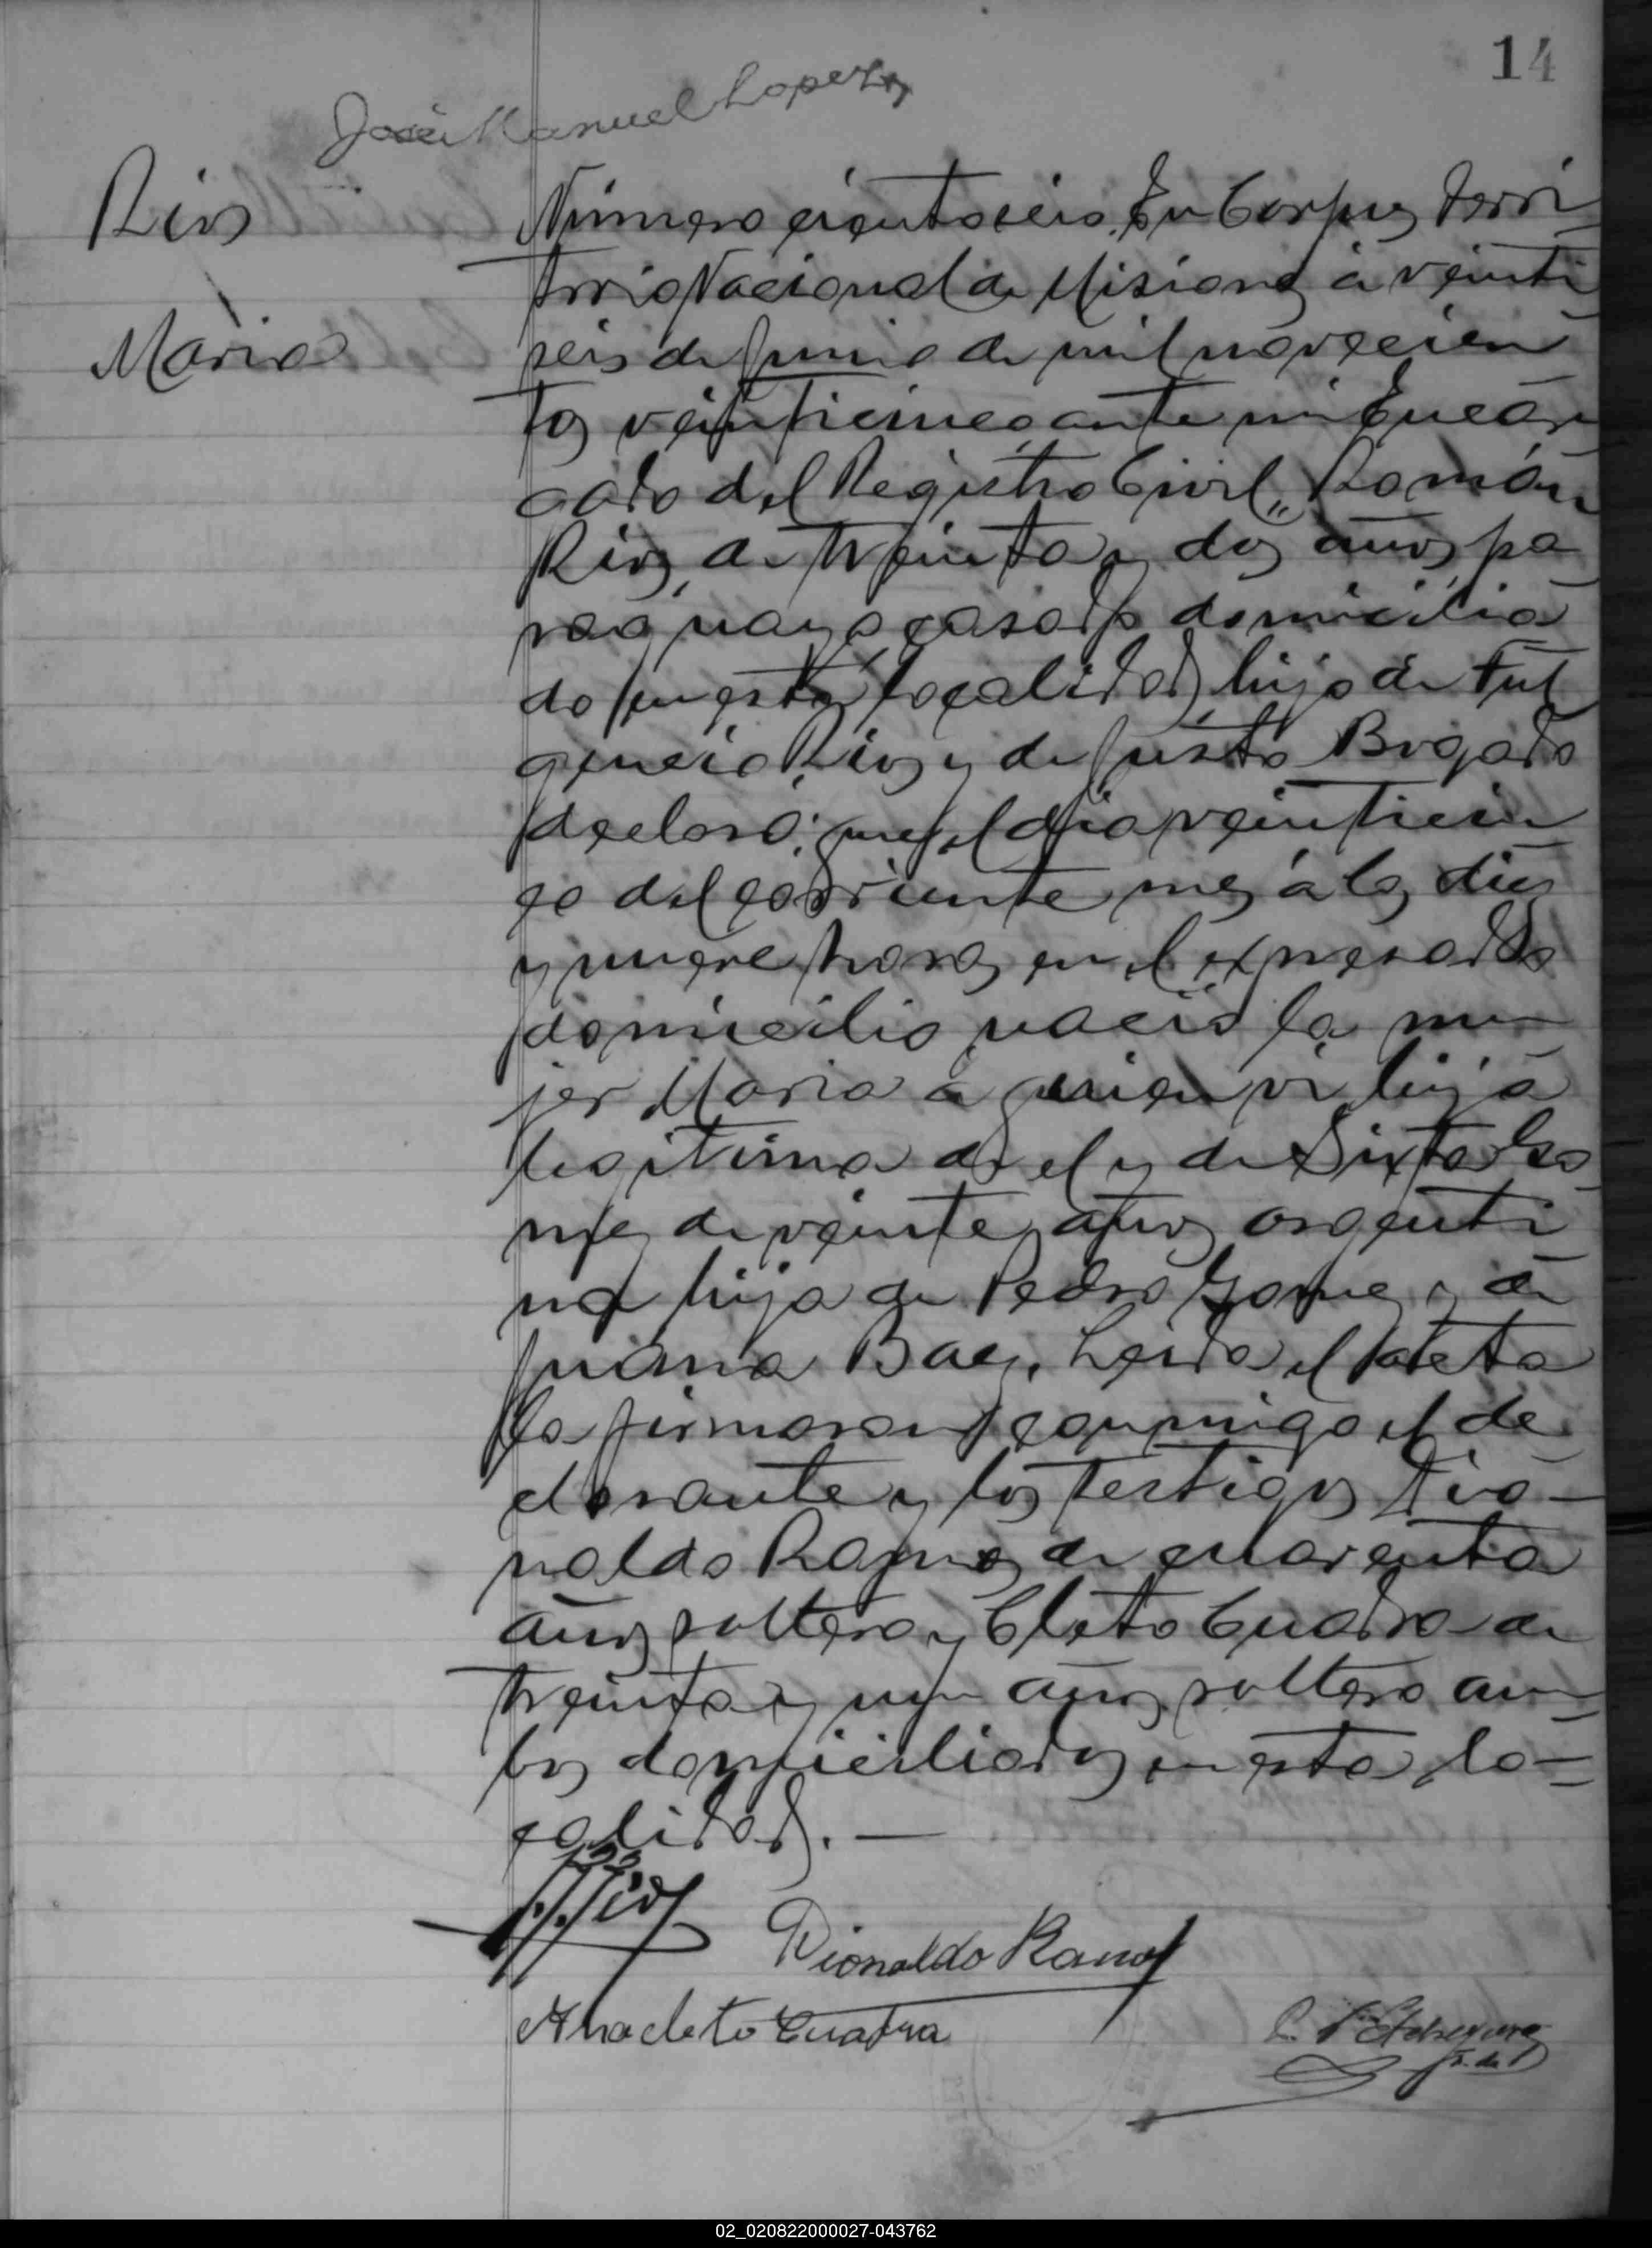 14
José Manuel Lopez
Rios
Maria
Número ciento seis. En Corpus terri
torio Nacional de Misiones á veinti
seis de Junio de mil novecien
tos veinticinco, ante mi Encar
gado del Registro Civil, Román
Rios, de treinta y dos años, pa
raguayo, casado domicilia
do en esta localidad, hijo de Ful
gencio Rios y de Justa Bogado
declaró: que el dia veinticin
co del corriente mes á las diez
y nueve horas en el expresado
domicilio nació la mu
jer Maria á quien vi hija
legitima de el y de Sixta Go
mez de veinte años argenti
na hija de Pedro Gomez y de
Juana Baez. Leida el acta
la firmaron conmigo el de
clarante y los testigos Dio
naldo Ramos de cuarenta
años soltero y Cleto Cuadra de
treinta y un años soltero am
bos domiciliados en esta lo
calidad.
Rios
Dionaldo Ramos
Anacleto Cuadra
J. de P.
02_020822000027-043762